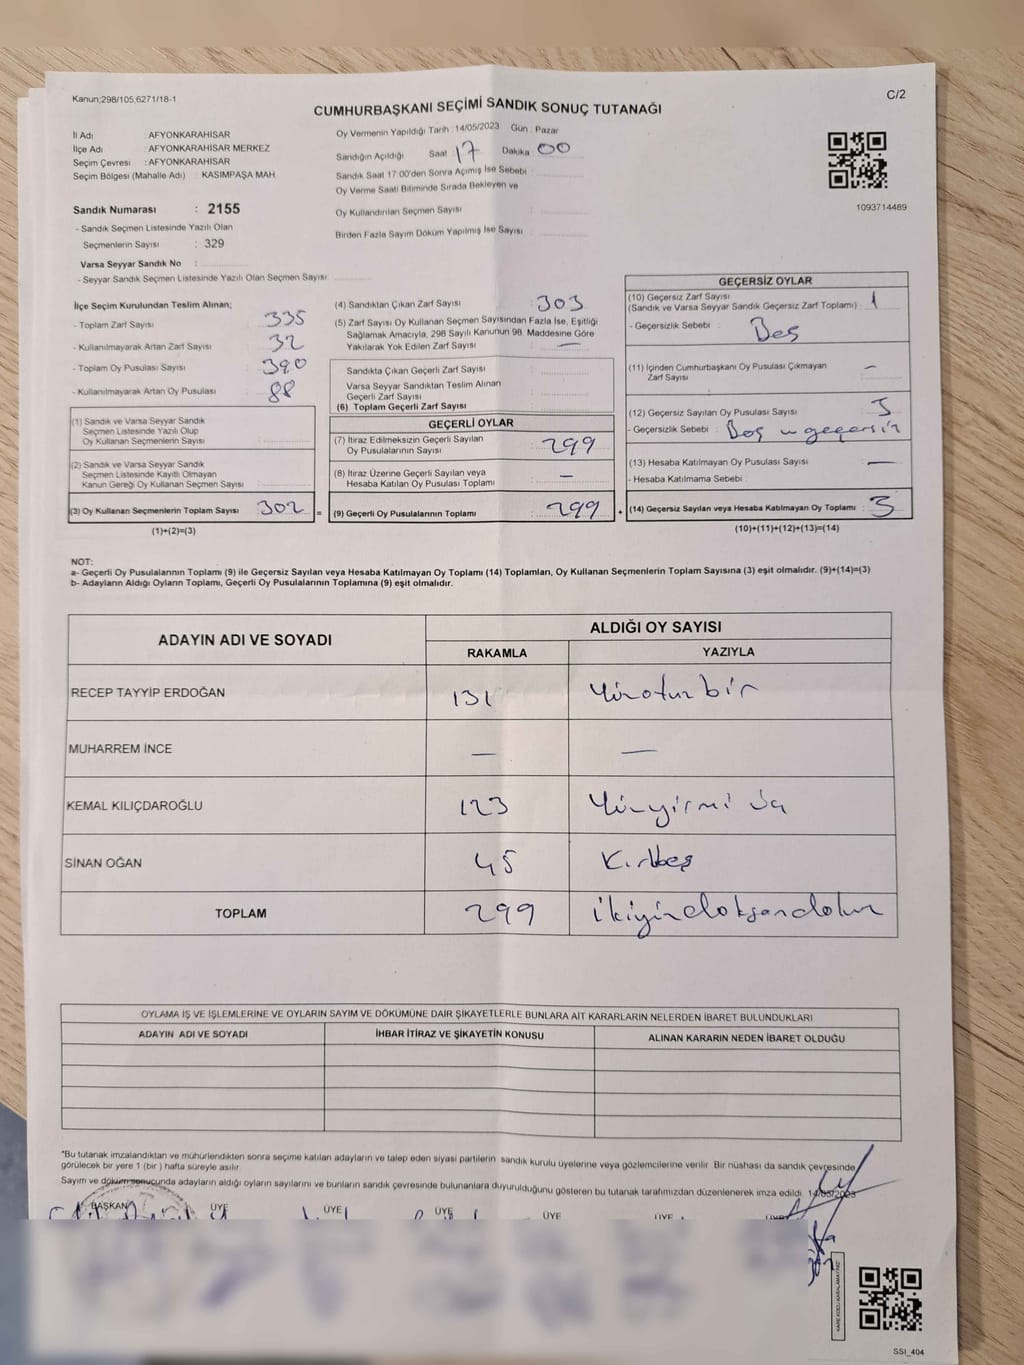 Kanun;298/105,6271/18-1
C/2
CUMHURBAŞKANI SEÇİMİ SANDIK SONUÇ TUTANAĞI
İl Adı : AFYONKARAHİSAR
İlçe Adı : AFYONKARAHİSAR MERKEZ
Seçim Çevresi : AFYONKARAHİSAR
Seçim Bölgesi (Mahalle Adı) : KASIMPAŞA MAH
Sandık Numarası : 2155
- Sandık Seçmen Listesinde Yazılı Olan
Seçmenlerin Sayısı : 329
Varsa Seyyar Sandık No :
- Seyyar Sandık Seçmen Listesinde Yazılı Olan Seçmen Sayısı
Oy Vermenin Yapıldığı Tarih : 14/05/2023 Gün : Pazar
Sandığın Açıldığı Saat : 17 Dakika : 00
Sandık Saat 17:00'den Sonra Açımış İse Sebebi :
Oy Verme Saati Bitiminde Sırada Bekleyen ve
Oy Kullandırılan Seçmen Sayısı :
Birden Fazla Sayım Döküm Yapılmış İse Sayısı :
1093714489
İlçe Seçim Kurulundan Teslim Alınan;
- Toplam Zarf Sayısı : 335
- Kullanılmayarak Artan Zarf Sayısı : 32
- Toplam Oy Pusulası Sayısı : 390
- Kullanılmayarak Artan Oy Pusulası : 88
(1) Sandık ve Varsa Seyyar Sandık
Seçmen Listesinde Yazılı Olup
Oy Kullanan Seçmenlerin Sayısı :
(2) Sandık ve Varsa Seyyar Sandık
Seçmen Listesinde Kayıtlı Olmayan
Kanun Gereği Oy Kullanan Seçmen Sayısı :
(3) Oy Kullanan Seçmenlerin Toplam Sayısı : 302 =
(1)+(2)=(3)
(4) Sandıktan Çıkan Zarf Sayısı : 303
(5) Zarf Sayısı Oy Kullanan Seçmen Sayısından Fazla İse, Eşitliği
Sağlamak Amacıyla, 298 Sayılı Kanunun 98. Maddesine Göre
Yakılarak Yok Edilen Zarf Sayısı : —
Sandıkta Çıkan Geçerli Zarf Sayısı :
Varsa Seyyar Sandıktan Teslim Alınan
Geçerli Zarf Sayısı :
(6) Toplam Geçerli Zarf Sayısı :
GEÇERLİ OYLAR
(7) İtiraz Edilmeksizin Geçerli Sayılan
Oy Pusulalarının Sayısı : 299
(8) İtiraz Üzerine Geçerli Sayılan veya
Hesaba Katılan Oy Pusulası Toplamı : —
(9) Geçerli Oy Pusulalarının Toplamı : 299 +
GEÇERSİZ OYLAR
(10) Geçersiz Zarf Sayısı
(Sandık ve Varsa Seyyar Sandık Geçersiz Zarf Toplamı) : 1
- Geçersizlik Sebebi : Boş
(11) İçinden Cumhurbaşkanı Oy Pusulası Çıkmayan
Zarf Sayısı : —
(12) Geçersiz Sayılan Oy Pusulası Sayısı :
- Geçersizlik Sebebi : Boş geçersiz
(13) Hesaba Katılmayan Oy Pusulası Sayısı : —
- Hesaba Katılmama Sebebi :
(14) Geçersiz Sayılan veya Hesaba Katılmayan Oy Toplamı : 3
(10)+(11)+(12)+(13)=(14)
NOT:
a- Geçerli Oy Pusulalarının Toplamı (9) ile Geçersiz Sayılan veya Hesaba Katılmayan Oy Toplamı (14) Toplamları, Oy Kullanan Seçmenlerin Toplam Sayısına (3) eşit olmalıdır. (9)+(14)=(3)
b- Adayların Aldığı Oyların Toplamı, Geçerli Oy Pusulalarının Toplamına (9) eşit olmalıdır.
ADAYIN ADI VE SOYADI
ALDIĞI OY SAYISI
RAKAMLA YAZIYLA
RECEP TAYYİP ERDOĞAN 131 Yüzotuzbir
MUHARREM İNCE — —
KEMAL KILIÇDAROĞLU 123 Yüzyirmi üç
SİNAN OĞAN 45 Kırkbeş
TOPLAM 299 ikiyüzdoksandokuz
OYLAMA İŞ VE İŞLEMLERİNE VE OYLARIN SAYIM VE DÖKÜMÜNE DAİR ŞİKAYETLERLE BUNLARA AİT KARARLARIN NELERDEN İBARET BULUNDUKLARI
ADAYIN ADI VE SOYADI İHBAR İTİRAZ VE ŞİKAYETİN KONUSU ALINAN KARARIN NEDEN İBARET OLDUĞU
*Bu tutanak imzalandıktan ve mühürlendikten sonra seçime katılan adayların ve talep eden siyasi partilerin sandık kurulu üyelerine veya gözlemcilerine verilir. Bir nüshası da sandık çevresinde
görülecek bir yere 1 (bir) hafta süreyle asılır.
Sayım ve döküm sonucunda adayların aldığı oyların sayılarını ve bunların sandık çevresinde bulunanlara duyurulduğunu gösteren bu tutanak tarafımızdan düzenlenerek imza edildi. 14/05/2023
BAŞKAN ÜYE ÜYE ÜYE ÜYE ÜYE ÜYE
KARE KODU KARALAMAYINIZ!
SSİ_404